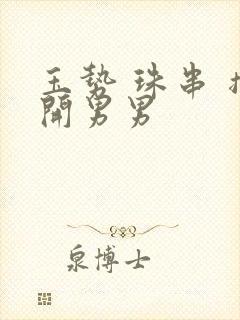 玉势 珠串 
開男男
泉博士